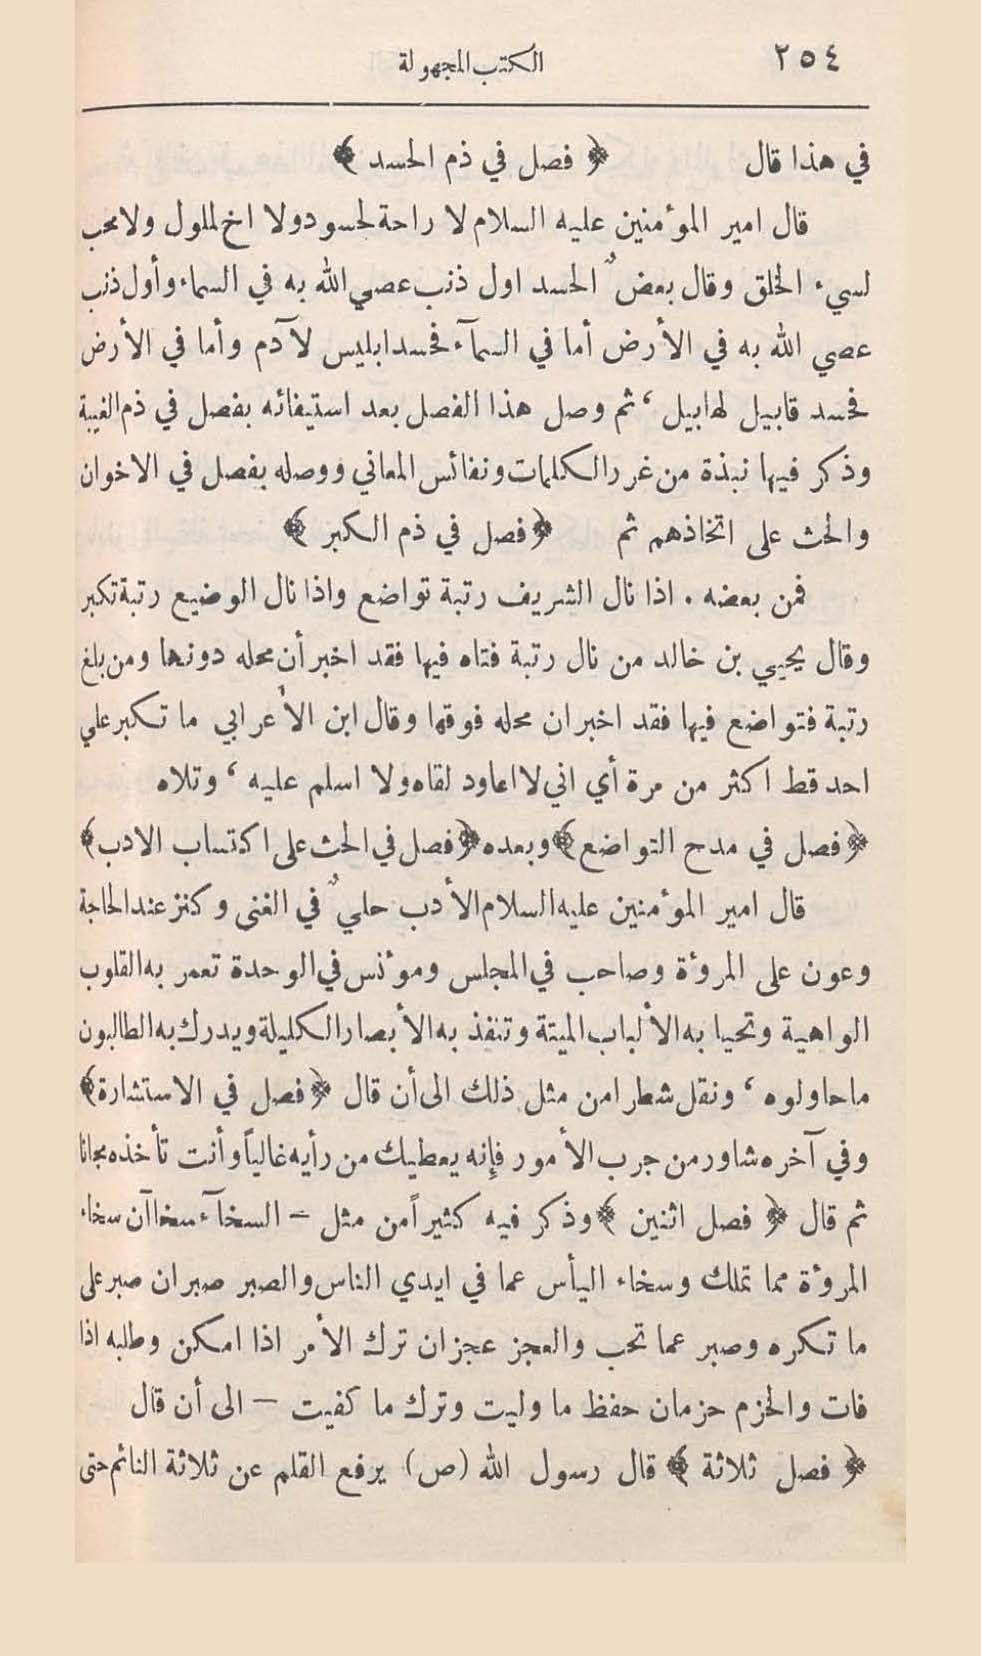 ٢٥٤ الكتب المجهولة
في هذا قال ﴿ فصل في ذم الحسد ﴾
قال امير المؤمنين عليه السلام لا راحة لحسود ولا اخ لملول ولا محب
لسيء الخلق وقال بعضٌ الحسد اول ذنب عصي الله به في السماء وأول ذنب
عصي الله به في الأرض أما في السمآء فحسد ابليس لآدم وأما في الأرض
فحسد قابيل لهابيل ، ثم وصل هذا الفصل بعد استيفائه بفصل في ذم الغيبة
وذكر فيها نبذة من غرر الكلمات ونفائس المعاني ووصله بفصل في الاخوان
والحث على اتخاذهم ثم ﴿ فصل في ذم الكبر ﴾
فمن بعضه . اذا نال الشريف رتبة تواضع واذا نال الوضيع رتبة تكبر
وقال يحيي بن خالد من نال رتبة فتاه فيها فقد اخبر أن محله دونها ومن بلغ
رتبة فتواضع فيها فقد اخبر ان محله فوقها وقال ابن الأعرابي ما تكبر علي
احد قط اكثر من مرة أي اني لا اعاود لقاه ولا اسلم عليه ، وتلاه
﴿ فصل في مدح التواضع ﴾ وبعده ﴿ فصل في الحث على اكتساب الادب ﴾
قال امير المؤمنين عليه السلام الأدب حليٌ في الغنى وكنز عند الحاجة
وعون على المروءة وصاحب في المجلس ومؤنس في الوحدة تعمر به القلوب
الواهية وتحيا به الألباب الميتة وتنفذ به الأبصار الكليلة ويدرك به الطالبون
ما حاولوه ، ونقل شطرا من مثل ذلك الى أن قال ﴿ فصل في الاستشارة ﴾
وفي آخره شاور من جرب الأمور فإنه يعطيك من رأيه غالياً وأنت تأخذه مجانا
ثم قال ﴿ فصل اثنين ﴾ وذكر فيه كثيراً من مثل – السخآء سخاآن سخاء
المروءة مما تملك وسخاء اليأس عما في ايدي الناس والصبر صبران صبر على
ما تكره وصبر عما تحب والعجز عجزان ترك الأمر اذا امكن وطلبه اذا
فات والحزم حزمان حفظ ما وليت وترك ما كفيت – الى أن قال
﴿ فصل ثلاثة ﴾ قال رسول الله (ص) يرفع القلم عن ثلاثة النائم حتى